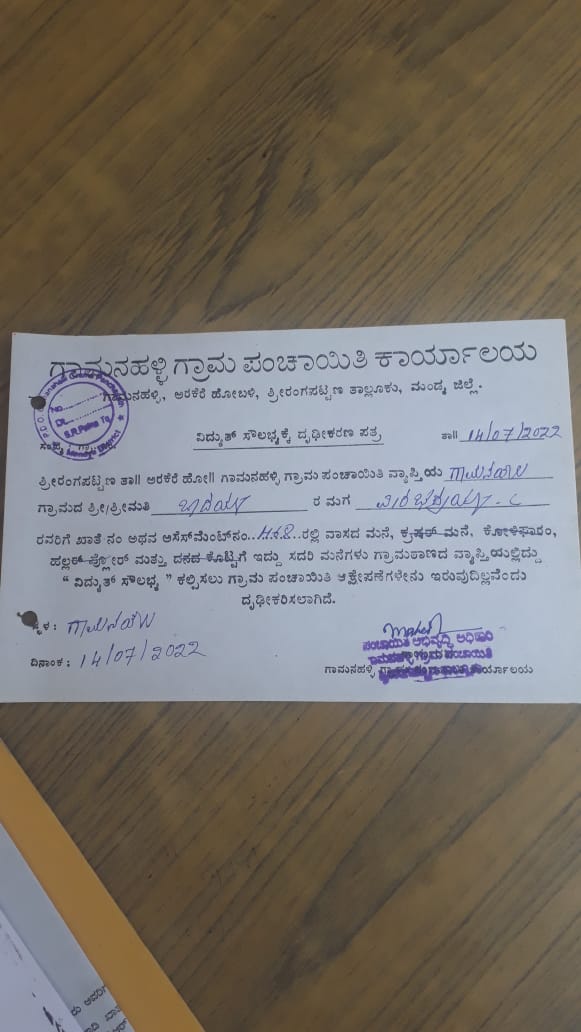 ಗಾಮನಹಳ್ಳಿ ಗ್ರಾಮ ಪಂಚಾಯಿತಿ ಕಾರ್ಯಾಲಯ
ಗಾಮನಹಳ್ಳಿ, ಅರಕೆರೆ ಹೋಬಳಿ, ಶ್ರೀರಂಗಪಟ್ಟಣ ತಾಲ್ಲೂಕು, ಮಂಡ್ಯ ಜಿಲ್ಲೆ.
No.
Dt.
S.R.Patna Tq
Mandya District
ವಿದ್ಯುತ್ ಸೌಲಭ್ಯಕ್ಕೆ ದೃಢೀಕರಣ ಪತ್ರ ತಾ॥ 14/07/2022
ಶ್ರೀರಂಗಪಟ್ಟಣ ತಾ॥ ಅರಕೆರೆ ಹೋ॥ ಗಾಮನಹಳ್ಳಿ ಗ್ರಾಮ ಪಂಚಾಯಿತಿ ವ್ಯಾಪ್ತಿಯ
ಗ್ರಾಮದ ಶ್ರೀ/ಶ್ರೀಮತಿ ರ ಮಗ
ರವರಿಗೆ ಖಾತೆ ನಂ ಅಥವ ಅಸೆಸ್‌ಮೆಂಟ್‌ನಂ. ರಲ್ಲಿ ವಾಸದ ಮನೆ, ಕೃಷರ್ ಮನೆ, ಕೋಳಿಫಾರಂ,
ಹಲ್ಲರ್ ಪ್ಲೋರ್ ಮತ್ತು ದನದ ಕೊಟ್ಟಿಗೆ ಇದ್ದು ಸದರಿ ಮನೆಗಳು ಗ್ರಾಮಠಾಣದ ವ್ಯಾಪ್ತಿಯಲ್ಲಿದ್ದು
" ವಿದ್ಯುತ್ ಸೌಲಭ್ಯ " ಕಲ್ಪಿಸಲು ಗ್ರಾಮ ಪಂಚಾಯಿತಿ ಆಕ್ಷೇಪಣೆಗಳೇನು ಇರುವುದಿಲ್ಲವೆಂದು
ದೃಢೀಕರಿಸಲಾಗಿದೆ.
ಸ್ಥಳ :
ದಿನಾಂಕ : 14/07/2022
ಪಂಚಾಯಿತಿ ಅಭಿವೃದ್ಧಿ ಅಧಿಕಾರಿ
ಗಾಮನಹಳ್ಳಿ ಗ್ರಾಮ ಪಂಚಾಯಿತಿ
ಗಾಮನಹಳ್ಳಿ ಗ್ರಾಮ ಕಾರ್ಯಾಲಯ